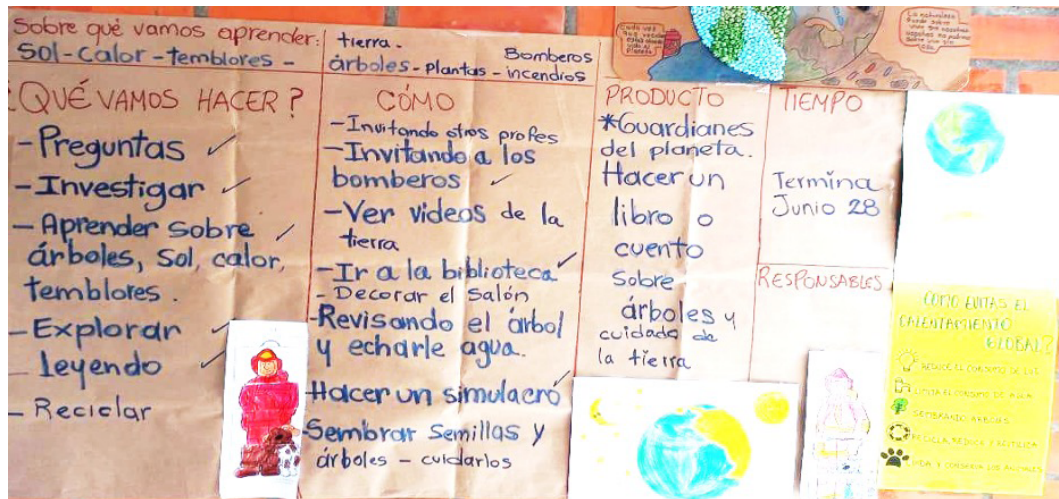 Sobre qué vamos aprender:
Sol - Calor - temblores -
tierra.
Bomberos
árboles - Plantas - incendios
¿QUÉ VAMOS HACER?
- Preguntas ✓
- Investigar ✓
- Aprender sobre ✓
árboles, Sol, calor,
temblores.
- Explorar ✓
- leyendo ✓
- Reciclar
CÓMO
- Invitando otros profes
- Invitando a los
bomberos ✓
- Ver videos de la
tierra
- Ir a la biblioteca ✓
- Decorar el Salón
- Revisando el árbol
y echarle agua.
- Hacer un simulacro ✓
- Sembrar Semillas y
árboles - cuidarlos
PRODUCTO
*Guardianes
del planeta.
Hacer un
libro o
cuento
Sobre
árboles y
cuidado de
la tierra
TIEMPO
Termina
Junio 28
RESPONSABLES
COMO EVITAS EL
CALENTAMIENTO
GLOBAL?
REDUCE EL CONSUMO DE LUZ
LIMITA EL CONSUMO DE AGUA
SEMBRANDO ARBOLES
RECICLA, REDUCE Y REUTILIZA
CUIDA Y CONSERVA LOS ANIMALES